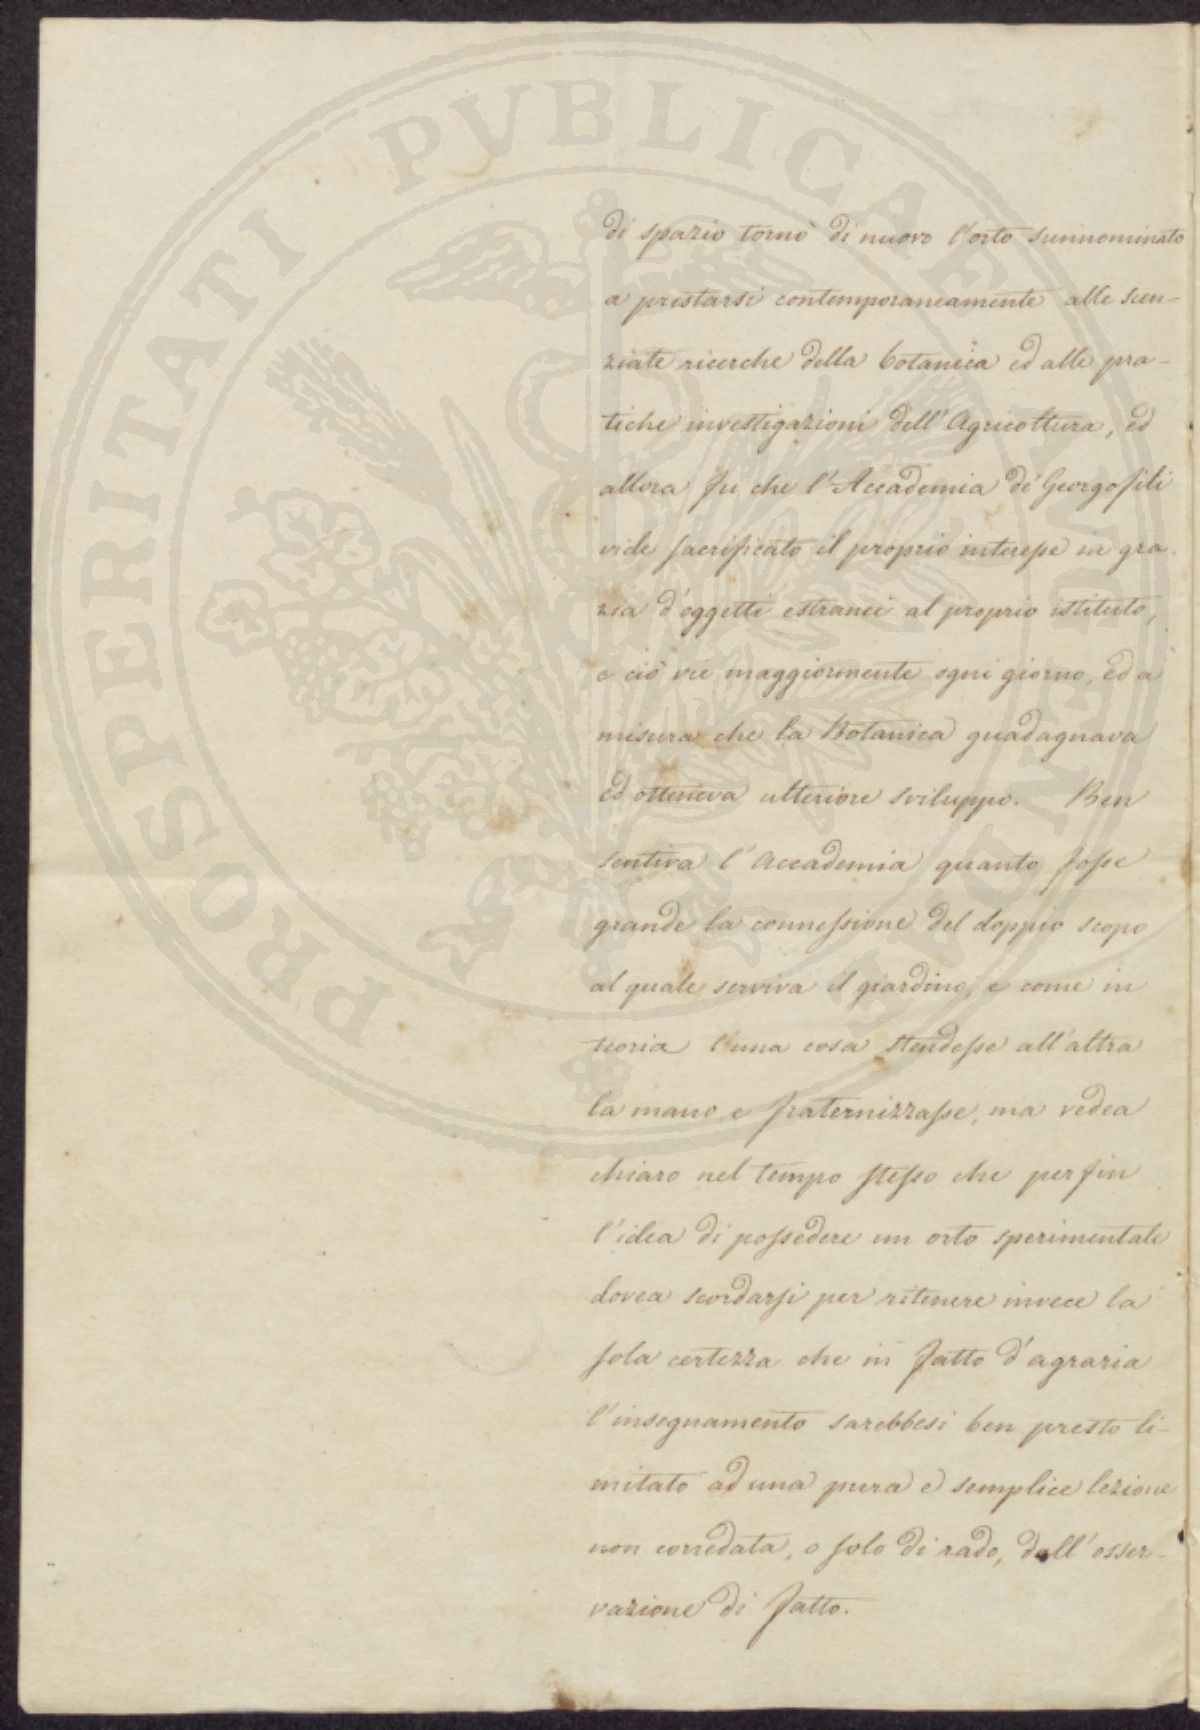 PROSPERITATI PUBLICAE AUGENDAE
di spazio tornò di nuovo l'orto sunnominato
a prestarsi contemporaneamente alle scen-
ziate ricerche della botanica ed alle pra-
tiche investigazioni dell'Agricoltura, ed
allora fu che l'Accademia de' Georgofili
vide sacrificato il proprio interesse in gra-
zia d'oggetti estranei al proprio istituto,
e ciò vie maggiormente ogni giorno, ed a
misura che la Botanica guadagnava
ed otteneva ulteriore sviluppo. Ben
sentiva l'Accademia quanto fosse
grande la connessione del doppio scopo
al quale serviva il giardino, e come in
teoria l'una cosa stendesse all'altra
la mano e fraternizzasse, ma vedea
chiaro nel tempo stesso che perfin
l'idea di possedere un orto sperimentale
dovea scordarsi per ritenere invece la
sola certezza che in fatto d'agraria
l'insegnamento sarebbesi ben presto li-
mitato ad una pura e semplice lezione
non corredata, o solo di rado, dall'osser-
vazione di fatto.